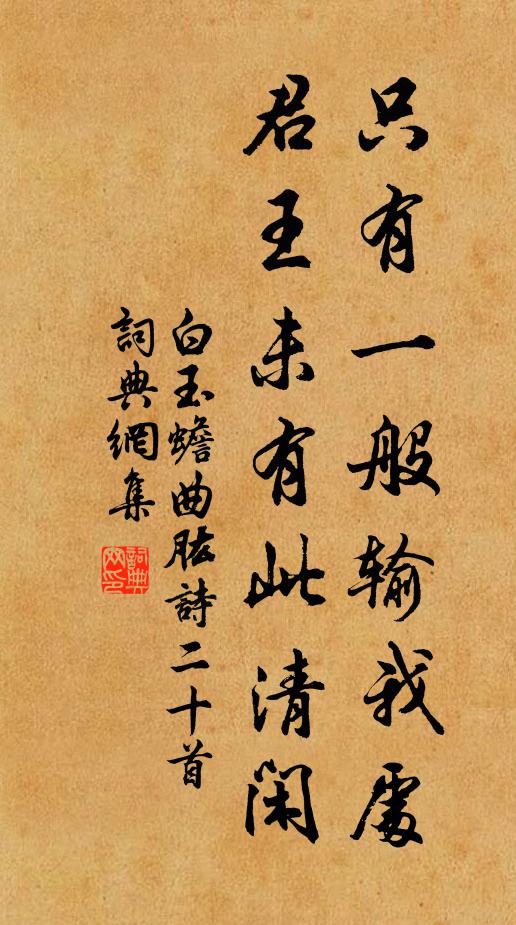 只有一般输我處
君王未有此清閑
白玉蟾曲肱詩二十首
詞典網集
詞典网印